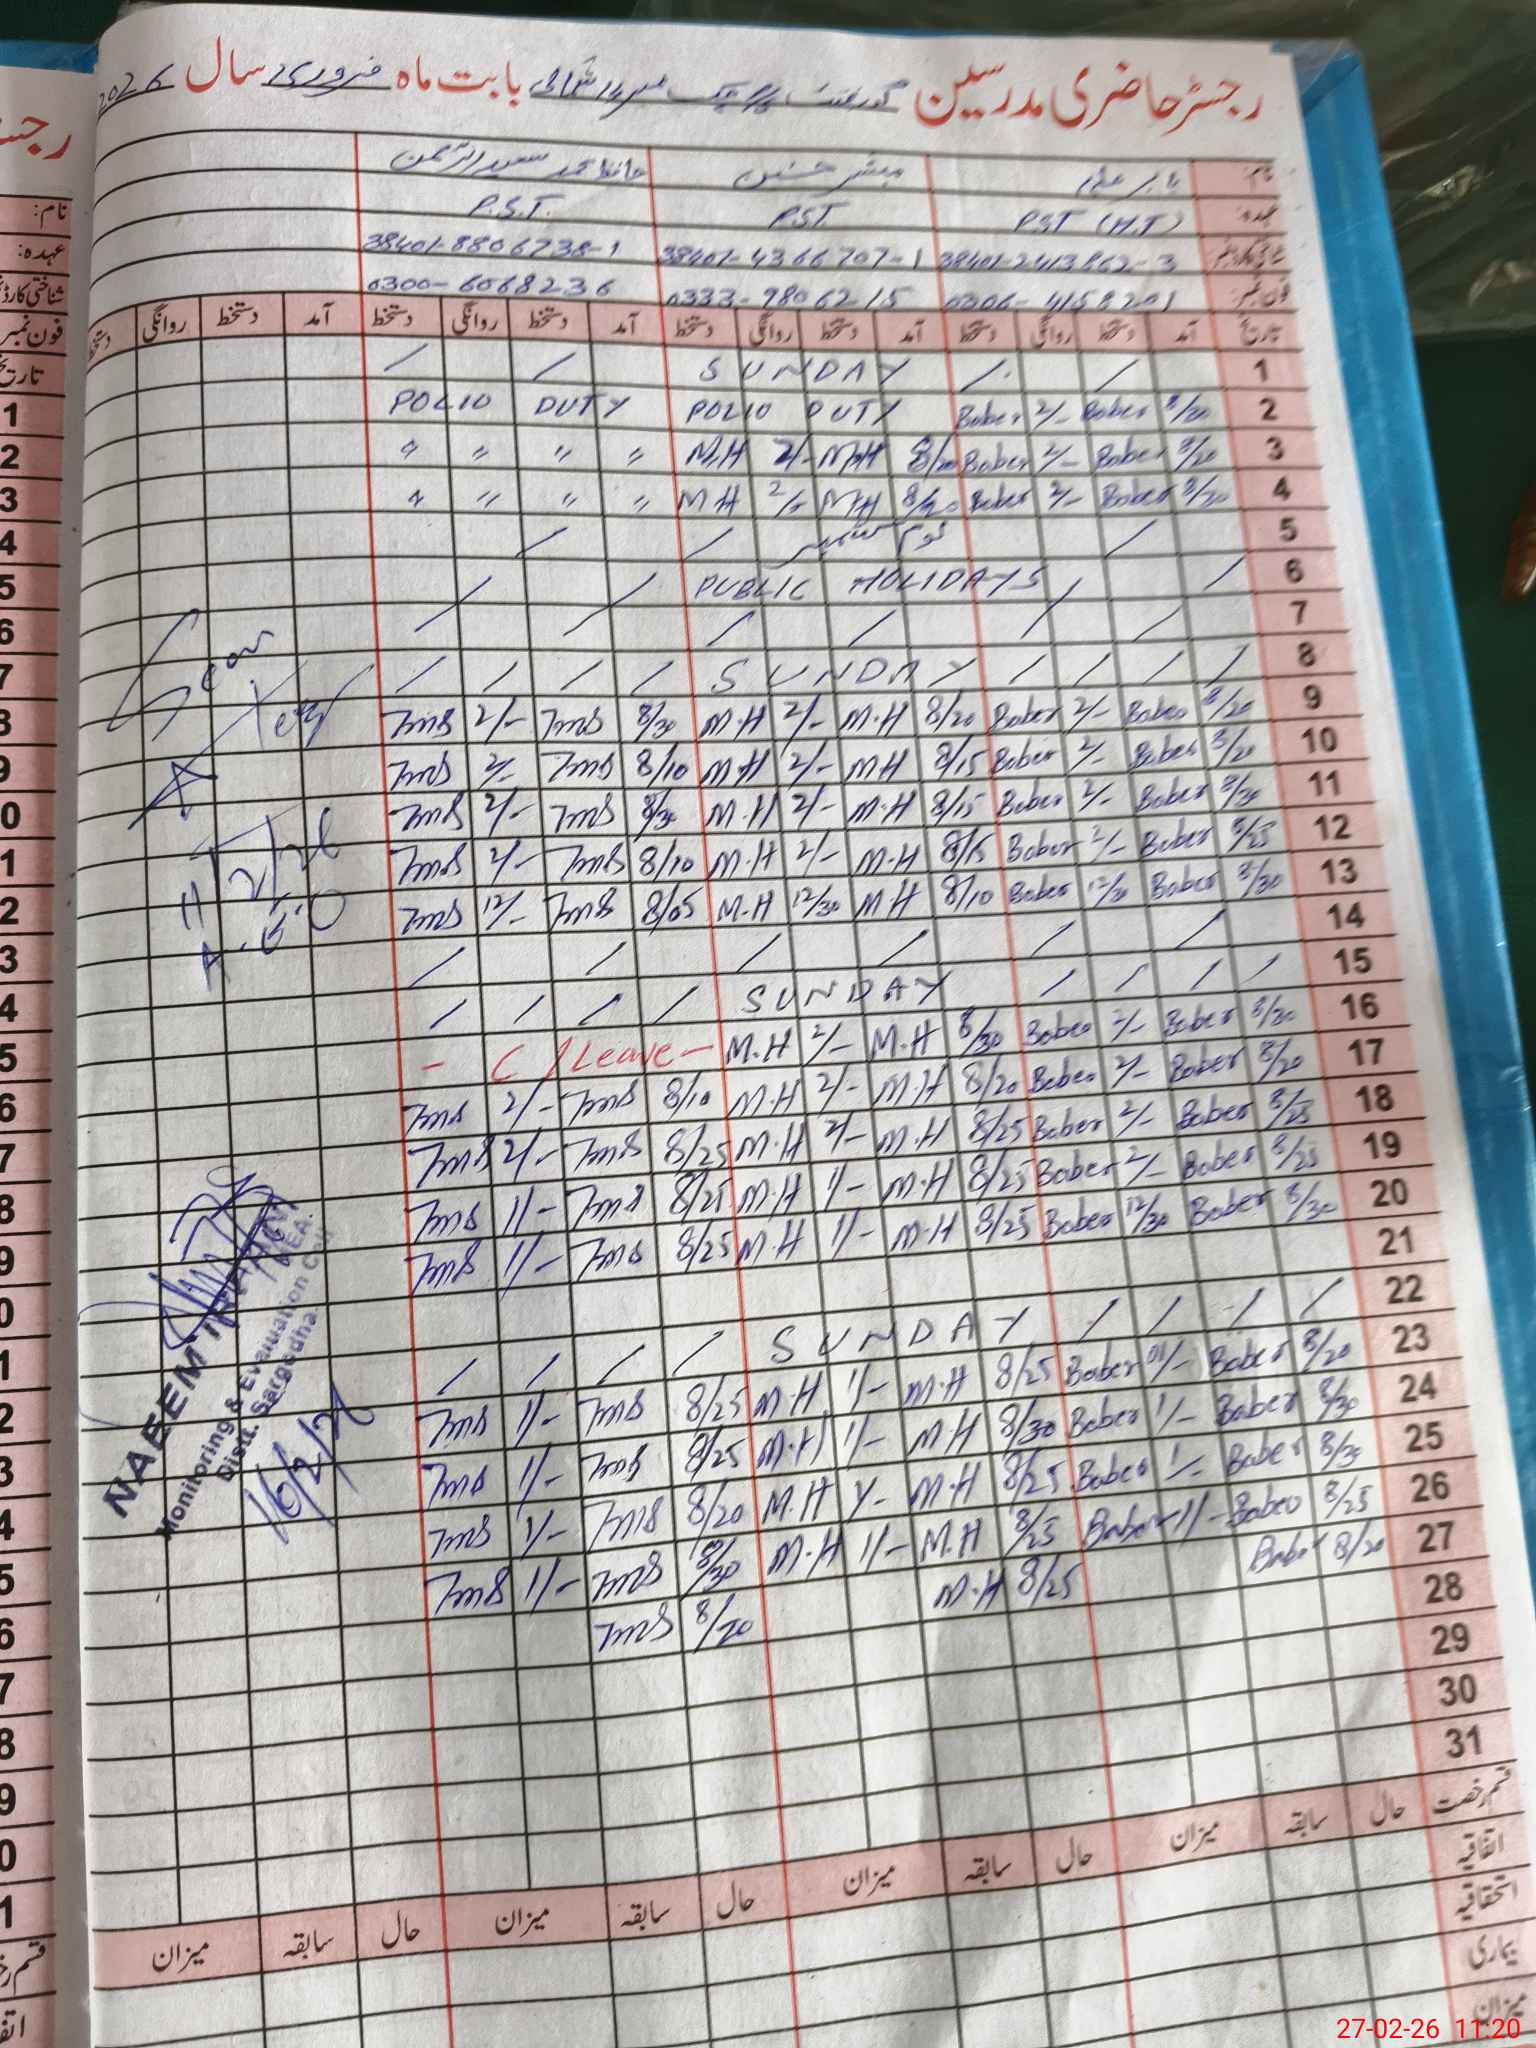 رجسٹر حاضری مدرسین گورنمنٹ بابت ماہ فروری سال 2026
نام: بابر علی مبشر حسنین حافظ محمد سعید الرحمن
عہدہ: PST (H.T) P.S.T P.S.T.
38401-2413862-3 38401-4366707-1 38401-8806738-1
فون نمبر: 0306-4158201 0333-9806215 0300-6068236
تاریخ آمد دستخط روانگی دستخط آمد دستخط روانگی دستخط آمد دستخط روانگی دستخط آمد دستخط روانگی دستخط
1 / / SUNDAY / /
2 8/20 Baber 2/- Baber POLIO DUTY POLIO DUTY
3 8/20 Baber 2/- Baber 8/20 M.H 2/- M.H " " " "
4 8/20 Baber 2/- Baber 8/20 MH 2/- MH " " " "
5 / یوم کشمیر / /
6 / / PUBLIC HOLIDAYS / /
7 / / / / / /
8 / / / / SUNDAY / / / /
9 8/20 Baber 2/- Baber 8/20 M.H 2/- M.H 8/30 TmS 2/- TmS
10 8/20 Baber 2/- Baber 8/15 MH 2/- MH 8/10 TmS 2/- TmS
11 8/30 Baber 2/- Baber 8/15 M.H 2/- M.H 8/30 TmS 2/- TmS
12 8/25 Baber 2/- Baber 8/15 M.H 2/- M.H 8/10 TmS 2/- TmS
13 8/30 Baber 12/30 Baber 8/10 MH 12/30 M.H 8/05 TmS 12/- TmS
14 / / / / / /
15 / / / / SUNDAY / / / /
16 8/30 Baber 2/- Baber 8/30 M.H 2/- M.H - C/Leave -
17 8/20 Baber 2/- Baber 8/20 M.H 2/- M.H 8/10 TmS 2/- TmS
18 8/25 Baber 2/- Baber 8/25 M.H 2/- M.H 8/25 TmS 2/- TmS
19 8/25 Baber 2/- Baber 8/25 M.H 1/- M.H 8/25 TmS 1/- TmS
20 8/30 Baber 12/30 Baber 8/25 M.H 1/- M.H 8/25 TmS 1/- TmS
21
22 / / / / SUNDAY / / / /
23 8/20 Baber 01/- Baber 8/25 M.H 1/- M.H 8/25 TmS 1/- TmS
24 8/30 Baber 1/- Baber 8/30 MH 1/- M.H 8/25 TmS 1/- TmS
25 8/30 Baber 1/- Baber 8/25 M.H 1/- M.H 8/20 TmS 1/- TmS
26 8/25 Baber 1/- Baber 8/25 M.H 1/- M.H 8/30 TmS 1/- TmS
27 8/20 Baber 8/25 M.H 8/20 TmS
28
29
30
31
قسم رخصت حال سابقہ میزان حال سابقہ میزان حال سابقہ میزان حال سابقہ میزان
اتفاقیہ
استحقاقیہ
بیماری
میزان
NAEEM
MEA.
Monitoring & Evaluation Cell
Distt. Sargodha
16/2/26
رجسٹ
نام:
عہدہ:
شناختی کارڈ
فون نمبر
تاریخ
1
2
3
4
5
6
7
8
9
0
1
2
3
4
5
6
7
8
9
0
1
2
3
4
5
6
7
8
9
0
1
27-02-26 11:20